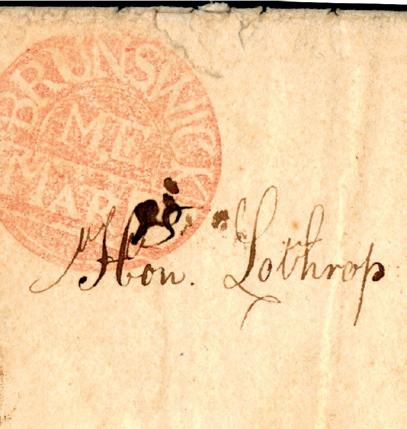 BRUNSWICK
ME
MAR
Hon. Lothrop